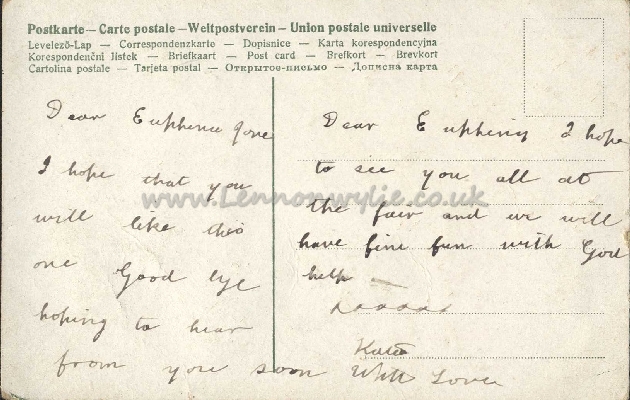 Postkarte — Carte postale — Weltpostverein — Union postale universelle
Levelező-Lap — Correspondenzkarte — Dopisnice — Karta korespondencyjna
Korespondenční lístek — Briefkaart — Post card — Brefkort — Brevkort
Cartolina postale — Tarjeta postal — Открытое-письмо — Дописна карта
Dear Euphenia Jane
I hope that you
will like this
one Good bye
hoping to hear
from you soon With Love
Dear Eupheniy I hope
to see you all at
the fair and we will
have fine fun with God
help —
xxxxxx
Katie
www.Lennonwylie.co.uk